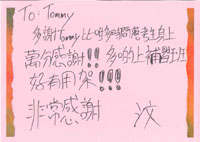 To: Tommy
多謝Tommy
萬分感謝!!! 多的上補習班
好有用架!!!
非常感謝 汶